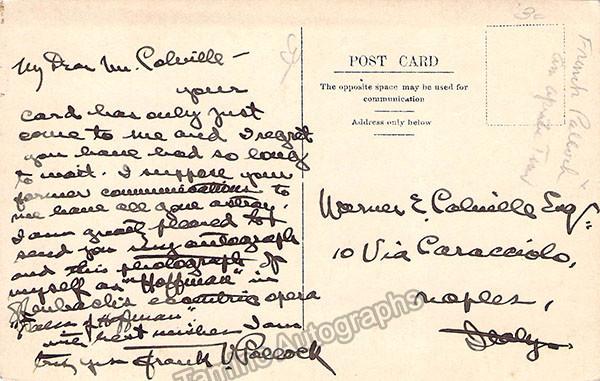 My Dear Mr. Colville —
your
card has only just
come to me and I regret
you have had so long
to wait. I suppose your
former communications to
me have all gone astray.
I am great pleased to
send you my autograph
and this photograph of
myself as "Hoffman" in
Offenbach's eccentric opera
"Tales of Hoffman"
with best wishes I am
truly yrs Frank Pollock
POST CARD
The opposite space may be used for
communication
Address only below
Warner E. Colville Esq.
10 Via Caracciolo,
Naples,
Italy.
Tamino Autographs